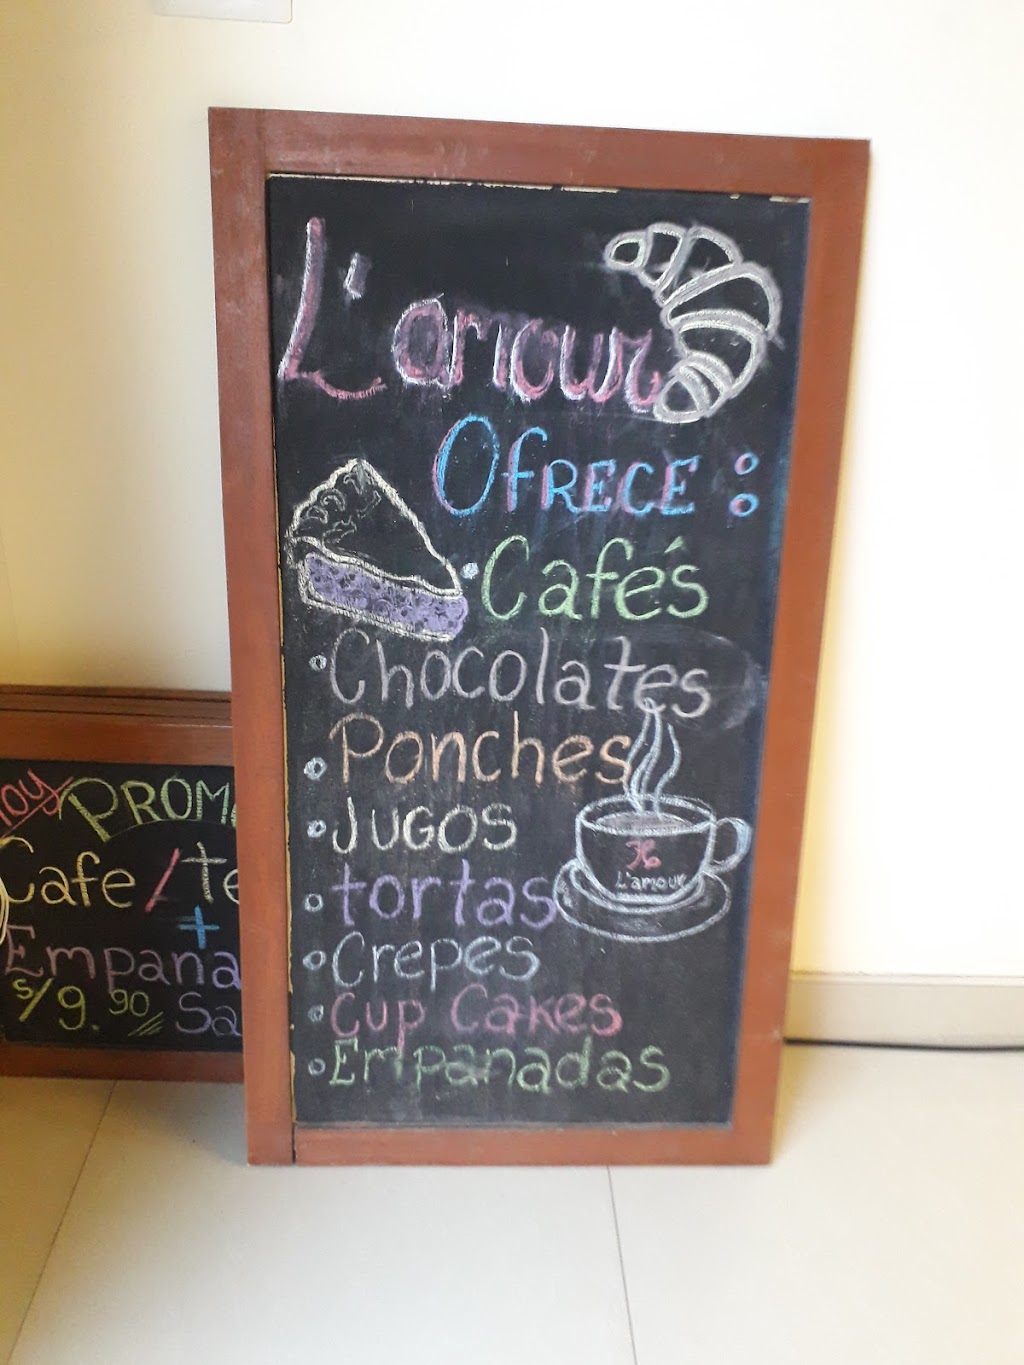 L'amour
OfRECE :
• Cafés
• Chocolates
• Ponches
• JUGOS
• tortas
• Crepes
• Cup Cakes
• Empanadas
L'amour
PROM
Cafe / te
+
Empana
s/9.90 Sa